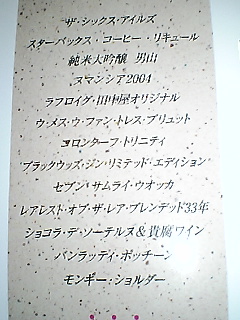 ザ・シックス・アイルズ
スターバックス・コーヒー・リキュール
純米大吟醸 男山
ヌマンシア2004
ラフロイグ・田中屋オリジナル
ウ・メス・ウ・ファン・トレス・ブリュット
コロンターフ・トリニティ
ブラックウッズ・ジン・リミテッド・エディション
セブン・サムライ・ウオッカ
レアレスト・オブ・ザ・レア・ブレンデッド33年
ショコラ・デ・ソーテルヌ&貴腐ワイン
バンラッティ・ポッチーン
モンキー・ショルダー